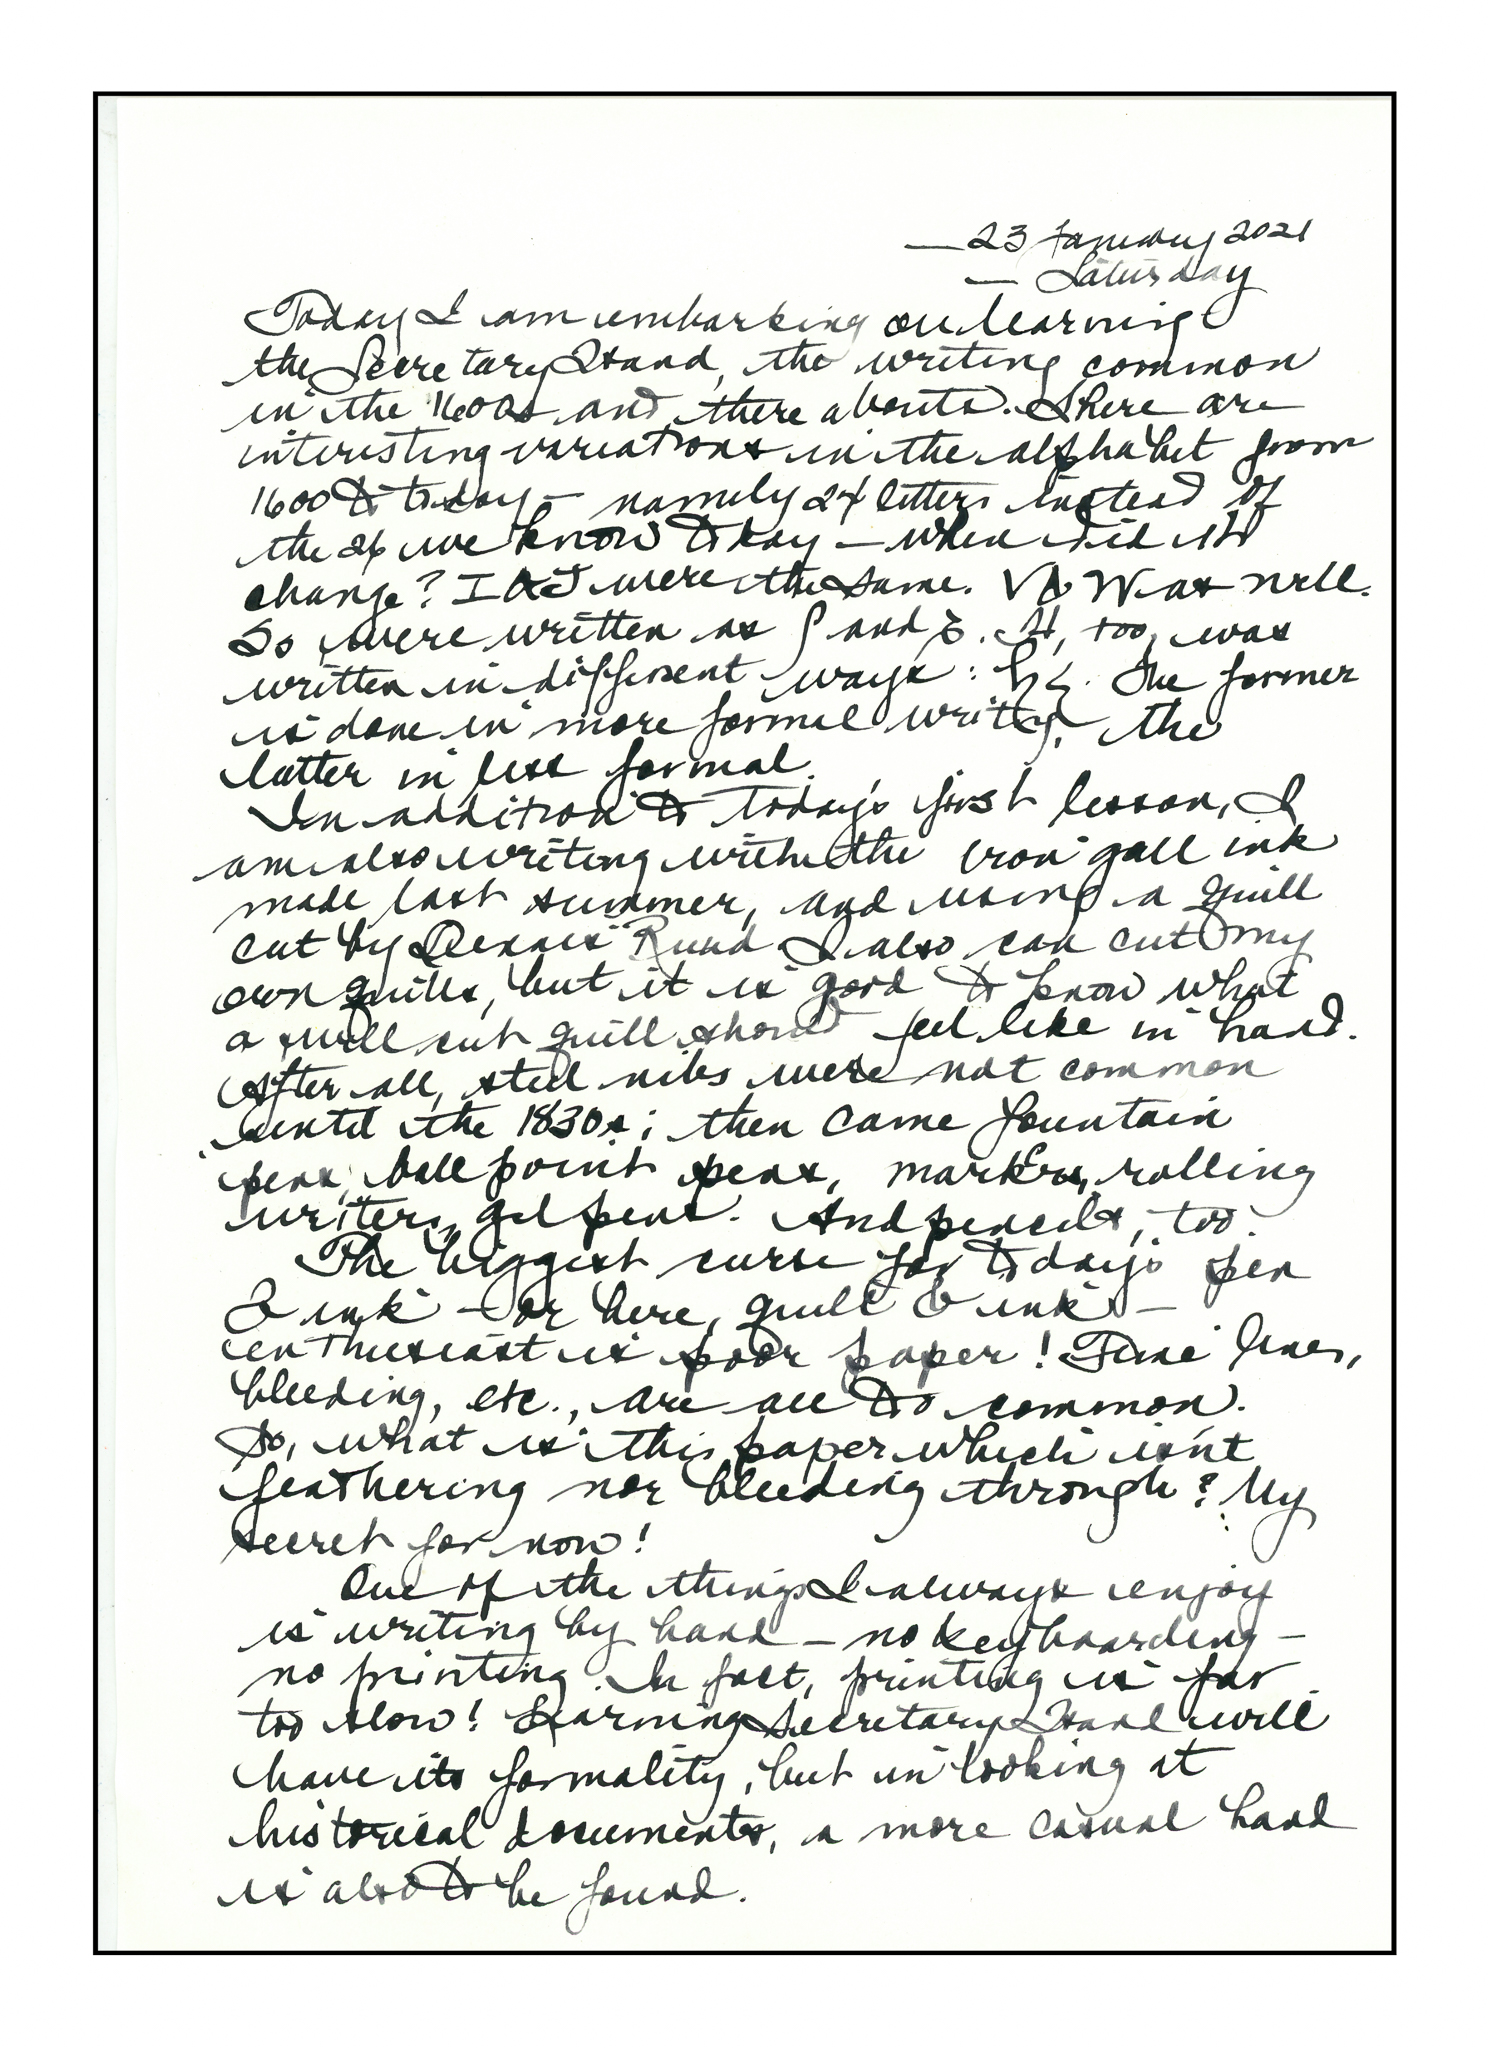 — 23 January 2021
— Saturday
Today I am embarking on learning
the Secretary Hand, the writing common
in the 1600s and there abouts. There are
interesting variations in the alphabet from
1600 to today – namely 24 letters instead of
the 26 we know today – when did it
change? I & J were the same. V & W as well.
So were written as ʃ and . H, too, was
written in different ways : . The former
is done in more formal writing, the
latter in less formal.
In addition to today's first lesson, I
am also writing with the iron gall ink
made last summer, and using a quill
cut by Dennis Ruud. I also can cut my
own quills, but it is good to know what
a well cut quill should feel like in hand.
After all, steel nibs were not common
until the 1830s; then came fountain
pens, ball point pens, markers, rolling
writers, gel pens. And pencils, too.
The biggest curse for today's pen
& ink – or here, quill & ink –
enthusiast is poor paper! Fine lines,
bleeding, etc., are all too common.
So, what is this paper which isn't
feathering nor bleeding through? My
secret for now!
One of the things I always enjoy
is writing by hand – no keyboarding –
no printing. In fact, printing is far
too slow! Learning Secretary Hand will
have its formality, but in looking at
historical documents, a more casual hand
is also to be found.